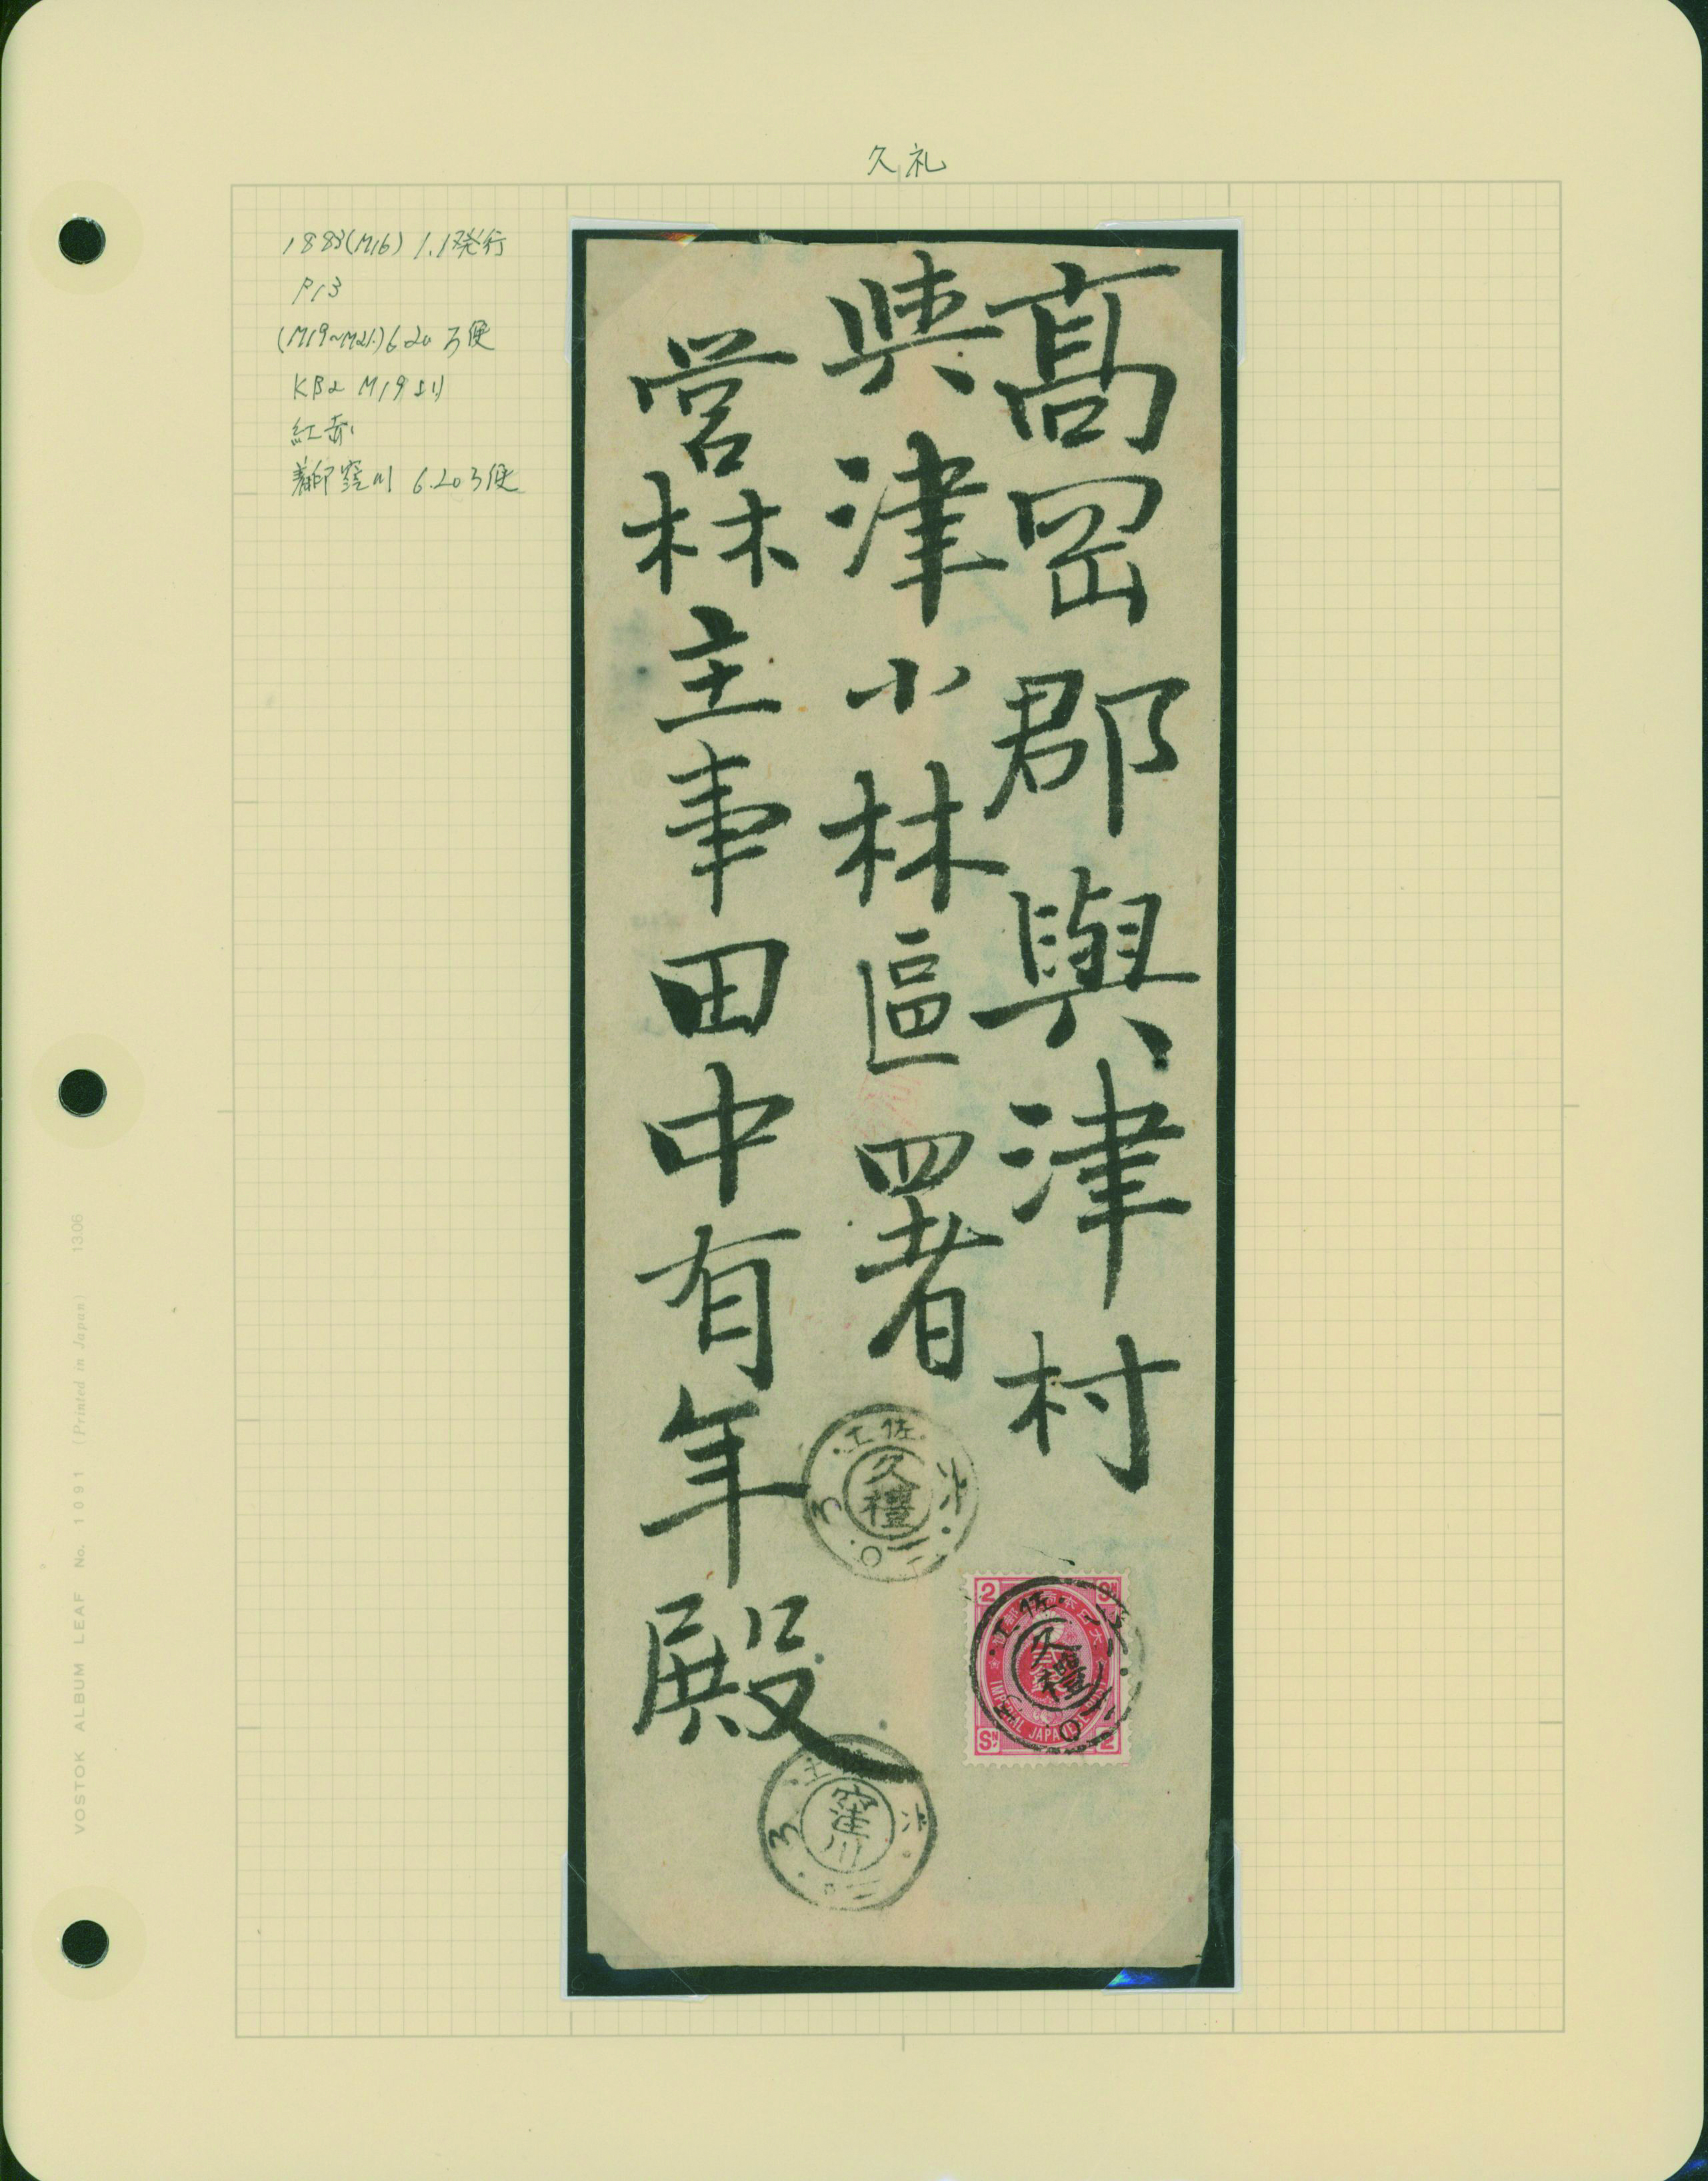 久礼
1883(M16) 1.1発行
P13
(M19~M21)6.20 ろ便
KB2 M19より
紅赤
着印窪川 6.20ろ便
高岡郡與津村
與津小林區署
営林主事田中有年殿
土佐
久禮
六
二〇
ろ
2 SN
大日本帝國郵便
IMPERIAL JAPANESE POST
SN 2
土佐
久禮
二〇
土
窪川
六
二〇
ろ
VOSTOK ALBUM LEAF No. 1091 (Printed in Japan) 1306